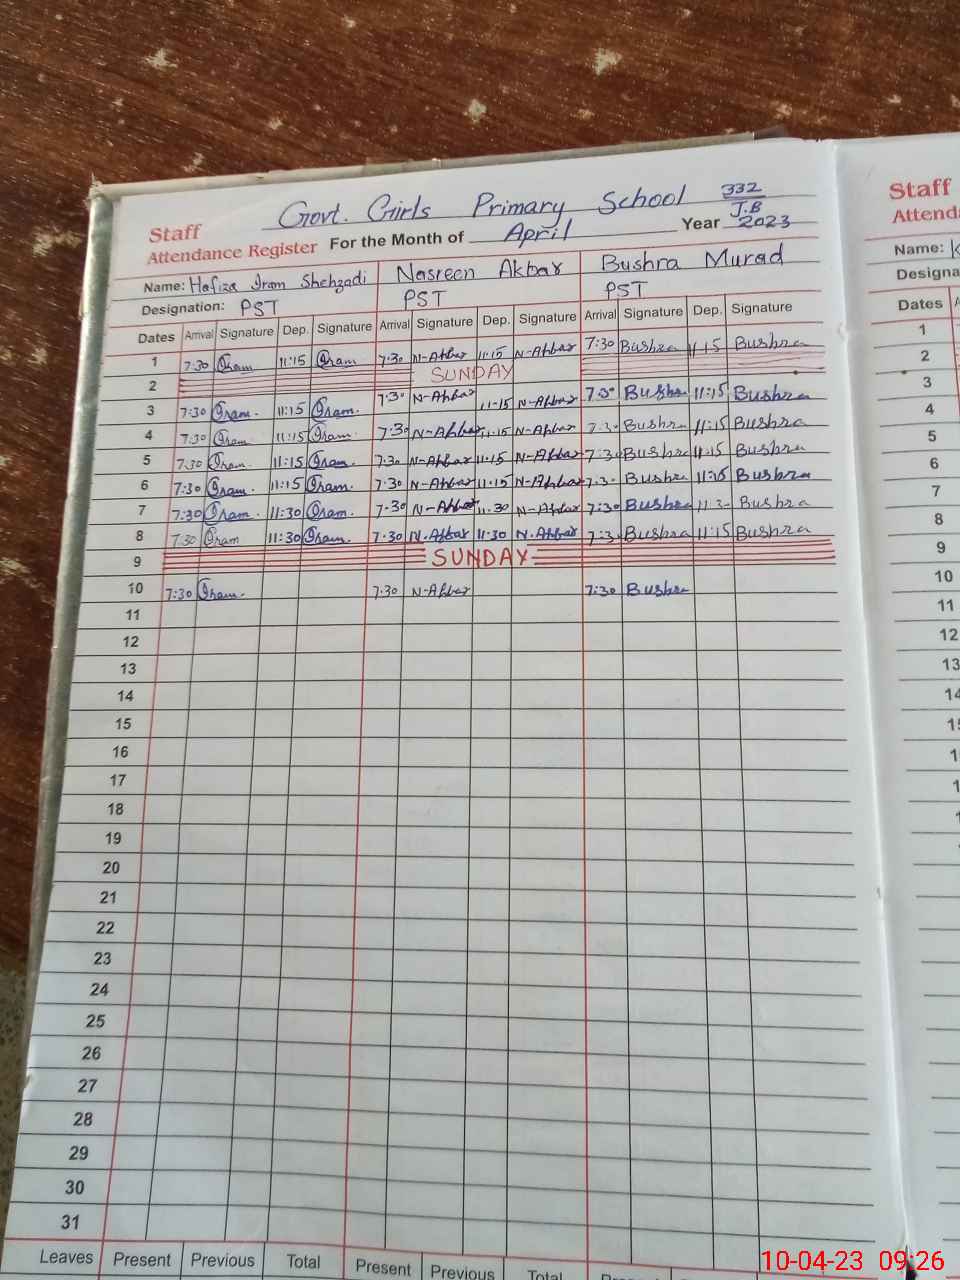 Govt. Girls Primary School 332
J.B
Staff
Attendance Register For the Month of April Year 2023
Name: Hafiza Iram Shehzadi Nasreen Akbar Bushra Murad
Designation: PST PST PST
Dates Arrival Signature Dep. Signature Arrival Signature Dep. Signature Arrival Signature Dep. Signature
1 7:30 Iram 11:15 Iram 7:30 N-Akbar 11:15 N-Akbar 7:30 Bushra 11:15 Bushra
2 SUNDAY
3 7:30 Iram. 11:15 Iram. 7:30 N-Akbar 11-15 N-Akbar 7:30 Bushra 11:15 Bushra
4 7:30 Iram. 11:15 Iram. 7:30 N-Akbar 11-15 N-Akbar 7:30 Bushra 11:15 Bushra
5 7:30 Iram. 11:15 Iram. 7:30 N-Akbar 11:15 N-Akbar 7:30 Bushra 11:15 Bushra
6 7:30 Iram. 11:15 Iram. 7:30 N-Akbar 11-15 N-Akbar 7:30 Bushra 11:15 Bushra
7 7:30 Iram. 11:30 Iram. 7:30 N-Akbar 11.30 N-Akbar 7:30 Bushra Bushra
8 7:30 Iram 11:30 Iram. 7:30 N.Akbar 11-30 N.Akbar 7:30 Bushra 11:15 Bushra
9 SUNDAY
10 7:30 Iram. 7:30 N-Akbar 7:30 Bushra
11
12
13
14
15
16
17
18
19
20
21
22
23
24
25
26
27
28
29
30
31
Leaves Present Previous Total Present Previous Total
Staff
Name:
Dates
1
2
3
4
5
6
7
8
9
10
11
12
13
10-04-23 09:26